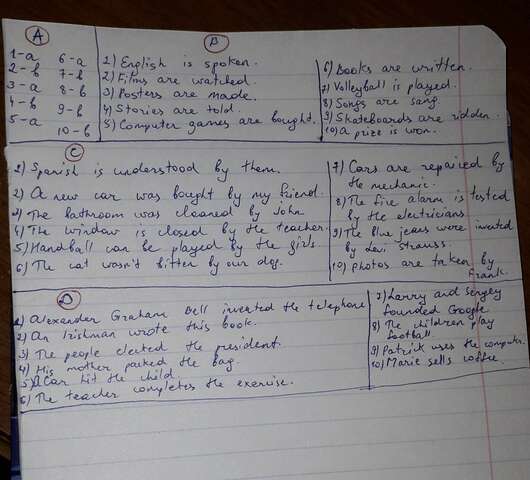 A
1-a 6-a
2-b 7-b
3-a 8-b
4-b 9-b
5-a 10-b
B
1) English is spoken.
2) Films are watched.
3) Posters are made.
4) Stories are told.
5) Computer games are bought.
6) Books are written.
7) Volleyball is played.
8) Songs are sang.
9) Skateboards are ridden.
10) A prize is won.
C
1) Spanish is understood by them.
2) A new car was bought by my friend.
3) The bathroom was cleaned by John
4) The window is closed by the teacher.
5) Handball can be played by the girls
6) The cat wasn't bitten by our dog.
7) Cars are repaired by
the mechanic.
8) The fire alarm is tested
by the electricians
9) The blue jeans were invented
by Levi Strauss.
10) Photos are taken by
Frank.
D
1) Alexander Graham Bell invented the telephone
2) An Irishman wrote this book.
3) The people elected the president.
4) His mother packed the bag
5) A car hit the child
6) The teacher completes the exercise.
7) Larry and Sergey
founded Google
8) The children play
football
9) Patrick uses the computer.
10) Marie sells coffee.